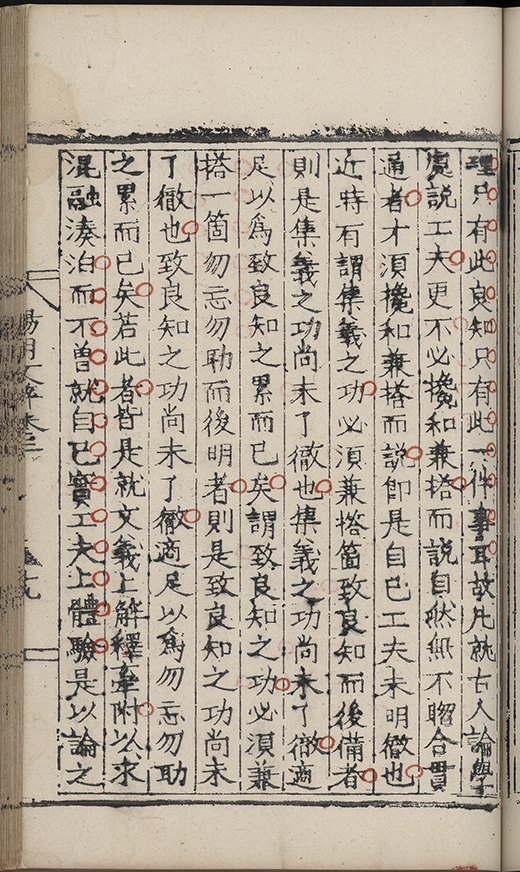 理只有此良知只有此一件事耳故凡就古人論學
處說工夫更不必攙和兼搭而說自然無不脗合貫
通者才須攙和兼搭而說即是自己工夫未明徹也
近時有謂集義之功必須兼搭箇致良知而後備者
則是集義之功尚未了徹也集義之功尚未了徹適
足以爲致良知之累而已矣謂致良知之功必須兼
搭一箇勿忘勿助而後明者則是致良知之功尚未
了徹也致良知之功尚未了徹適足以爲勿忘勿助
之累而已矣若此者皆是就文義上解釋牽附以求
混融湊泊而不曾就自己實工夫上體驗是以論之
陽明文粹卷